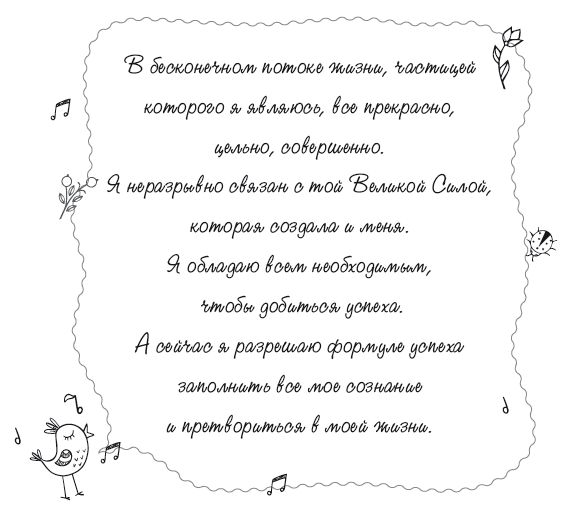 В бесконечном потоке жизни, частицей
которого я являюсь, все прекрасно,
цельно, совершенно.
Я неразрывно связан с той Великой Силой,
которая создала и меня.
Я обладаю всем необходимым,
чтобы добиться успеха.
А сейчас я разрешаю формуле успеха
заполнить все мое сознание
и претвориться в моей жизни.